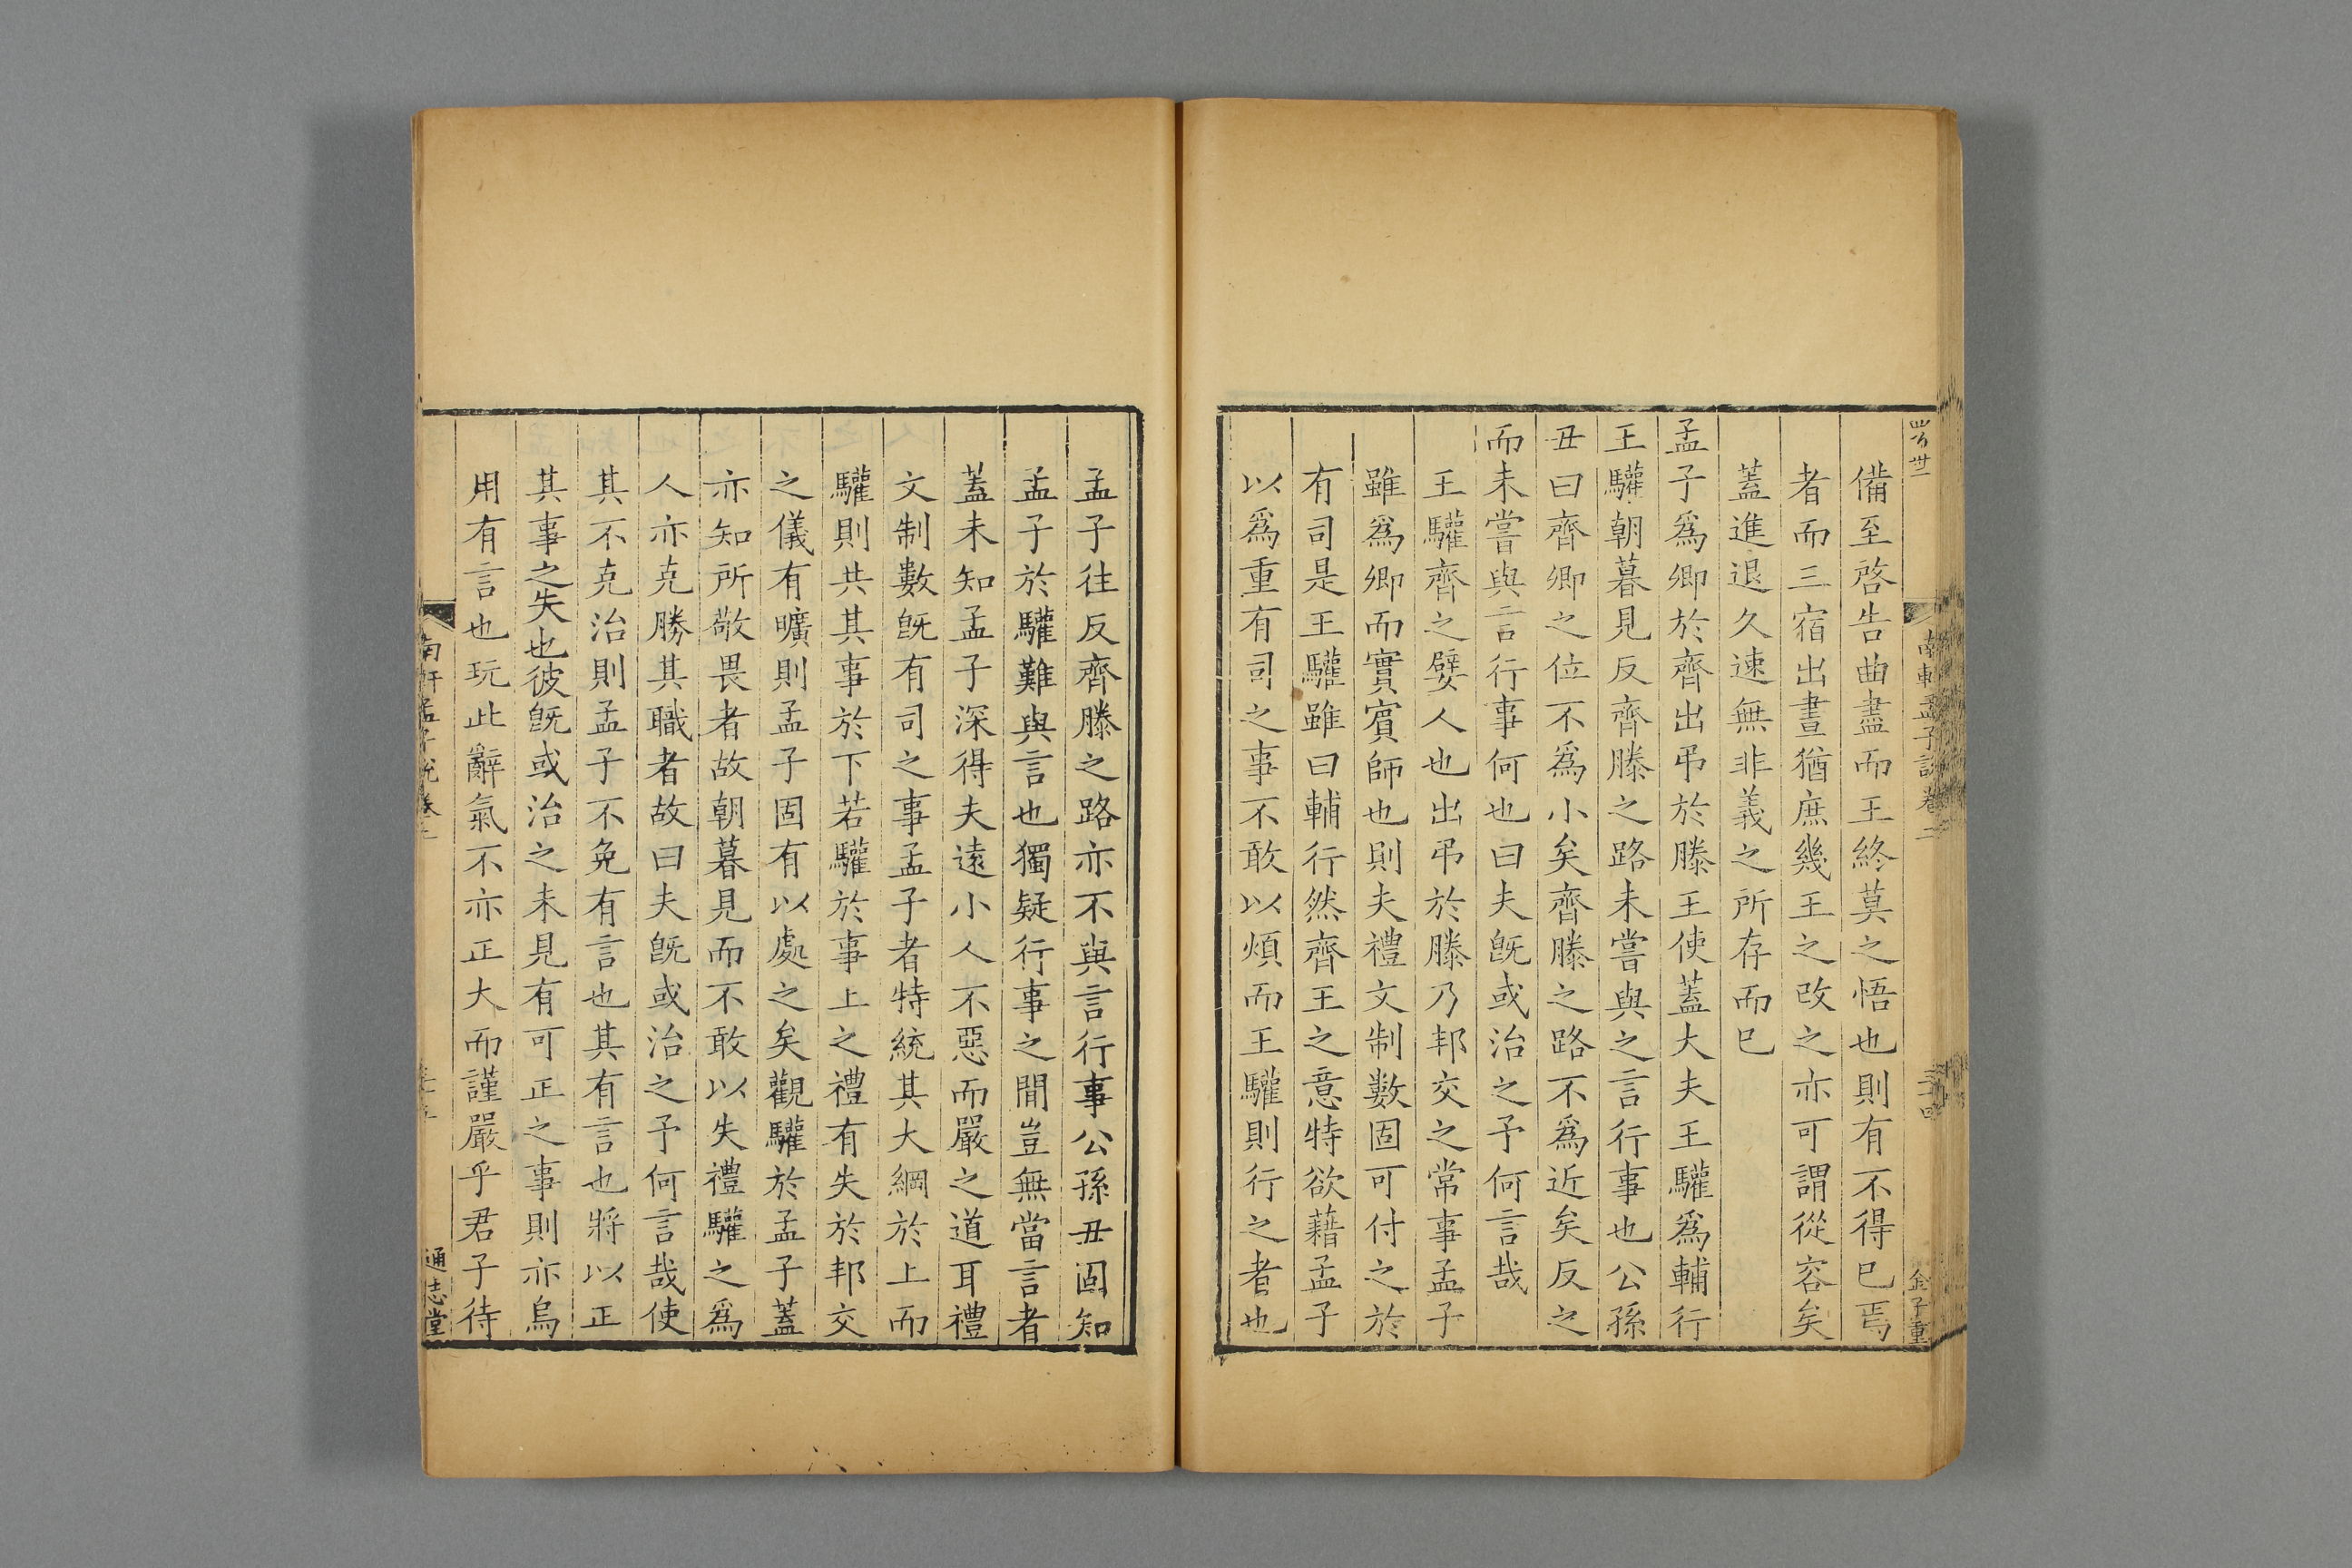 備至啓告曲盡而王終莫之悟也則有不得已焉
者而三宿出晝猶庶幾王之改之亦可謂從容矣
蓋進退久速無非義之所存而已
孟子爲卿於齊出弔於滕王使蓋大夫王驩爲輔行
王驩朝暮見反齊滕之路未嘗與之言行事也公孫
丑曰齊卿之位不爲小矣齊滕之路不爲近矣反之
而未嘗與言行事何也曰夫旣或治之予何言哉
王驩齊之嬖人也出弔於滕乃邦交之常事孟子
雖爲卿而實賓師也則夫禮文制數固可付之於
有司是王驩雖曰輔行然齊王之意特欲藉孟子
以爲重有司之事不敢以煩而王驩則行之者也
南軒孟子說卷二
三十四
金子重
孟子往反齊滕之路亦不與言行事公孫丑固知
孟子於驩難與言也獨疑行事之間豈無當言者
蓋未知孟子深得夫遠小人不惡而嚴之道耳禮
文制數旣有司之事孟子者特統其大綱於上而
驩則共其事於下若驩於事上之禮有失於邦交
之儀有曠則孟子固有以處之矣觀驩於孟子蓋
亦知所敬畏者故朝暮見而不敢以失禮驩之爲
人亦克勝其職者故曰夫旣或治之予何言哉使
其不克治則孟子不免有言也其有言也將以正
其事之失也彼旣或治之未見有可正之事則亦烏
用有言也玩此辭氣不亦正大而謹嚴乎君子待
南軒孟子說卷二
通志堂